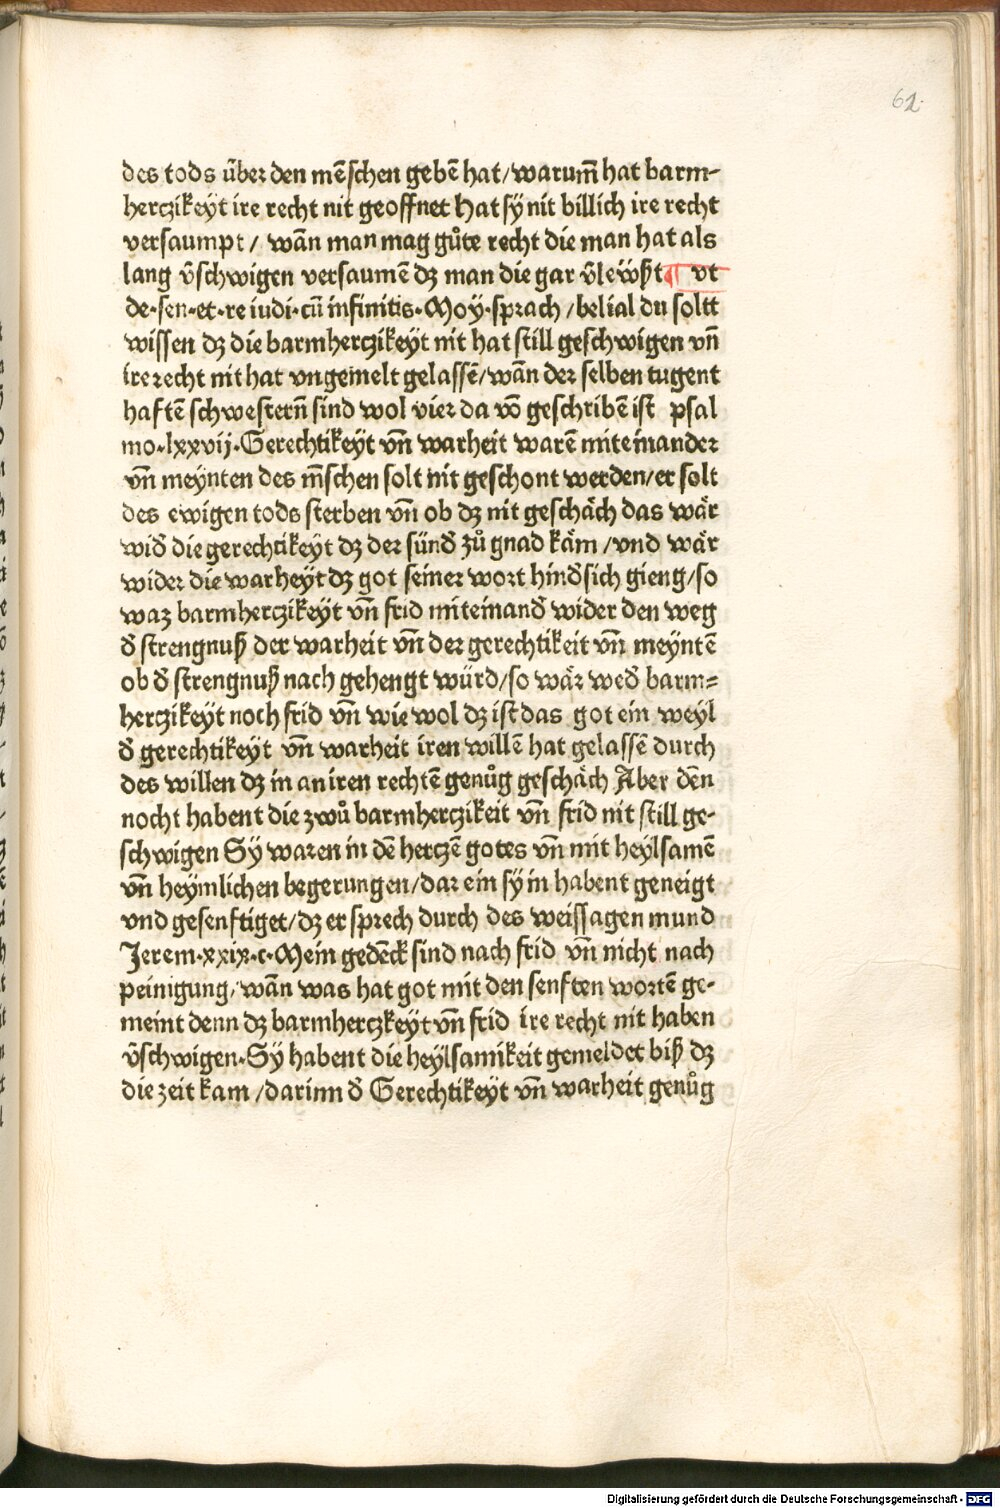 62.
des tods v̈ber den mēschen gebē hat/warum̄ hat barm-
herczikeyt ire recht nit geoffnet Hat sÿ nit billich ire recht
versaumpt/ wān man mag gůte recht die man hat als
lang v̄schwigen versaumē dz man die gar v̄lewßt ¶ vt
de·sen·et·re iudi·cū infinitis·Moÿ·sprach/belial du soltt
wissen dz die barmherczikeÿt nit hat still geschwigen vn̄
ire recht nit hat vngemelt gelassē/wān der selben tugent
haftē schwestern̄ sind wol vier da vō geschribē ist psal
mo·lxxvij·Gerechtikeÿt vn̄ warheit warē miteinander
vn̄ meÿnten des m̄schen solt nit geschont werden/er solt
des ewigen tods sterben vn̄ ob dz nit geschäch das wär
wid̄ die gerechtikeyt dz der sünd̄ zů gnad käm/vnd wär
wider die warheÿt dz got seiner wort hind̄sich gieng/so
waz barmherczikeÿt vn̄ frid miteinand̄ wider den weg
d̄ strengnuß der warheit vn̄ der gerechtikeit vn̄ meÿntē
ob d̄ strengnuß nach gehengt würd/so wär wed̄ barm=
herczikeÿt noch frid vn̄ wie wol dz ist das got ein weÿl
d̄ gerechtikeÿt vn̄ warheit iren willē hat gelassē durch
des willen dz in an iren rechtē genůg geschäch Aber dēn
nocht habent die zwů barmherczikeit vn̄ frid nit still ge-
schwigen Sÿ waren in dē herczē gotes vn̄ mit heÿlsamē
vn̄ heÿmlichen begerungen/dar ein sÿ in habent geneigt
vnd gesenftiget/dz er sprech durch des weissagen mund
Jerem·xxix·c·Mein gedēck sind nach frid vn̄ nicht nach
peinigung/wān was hat got mit den senften wortē ge-
meint denn dz barmherczkeÿt vn̄ frid ire recht nit haben
v̄schwigen·Sÿ habent die heÿlsamikeit gemeldet biß dz
die zeit kam/darinn d̄ Gerechtikeÿt vn̄ warheit genůg
Digitalisierung gefördert durch die Deutsche Forschungsgemeinschaft - DFG